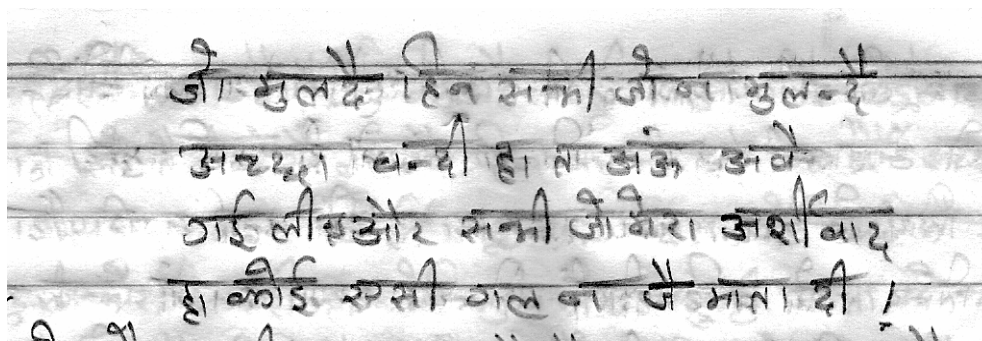 जो भुलदे हिन सभी जो न भुलन्दै
अच्छा बन्दी हा त अंऊ अवे
गई ली और सभी जो मेरा अर्शीवाद
हा कोई एसी गल न जै माता दी !